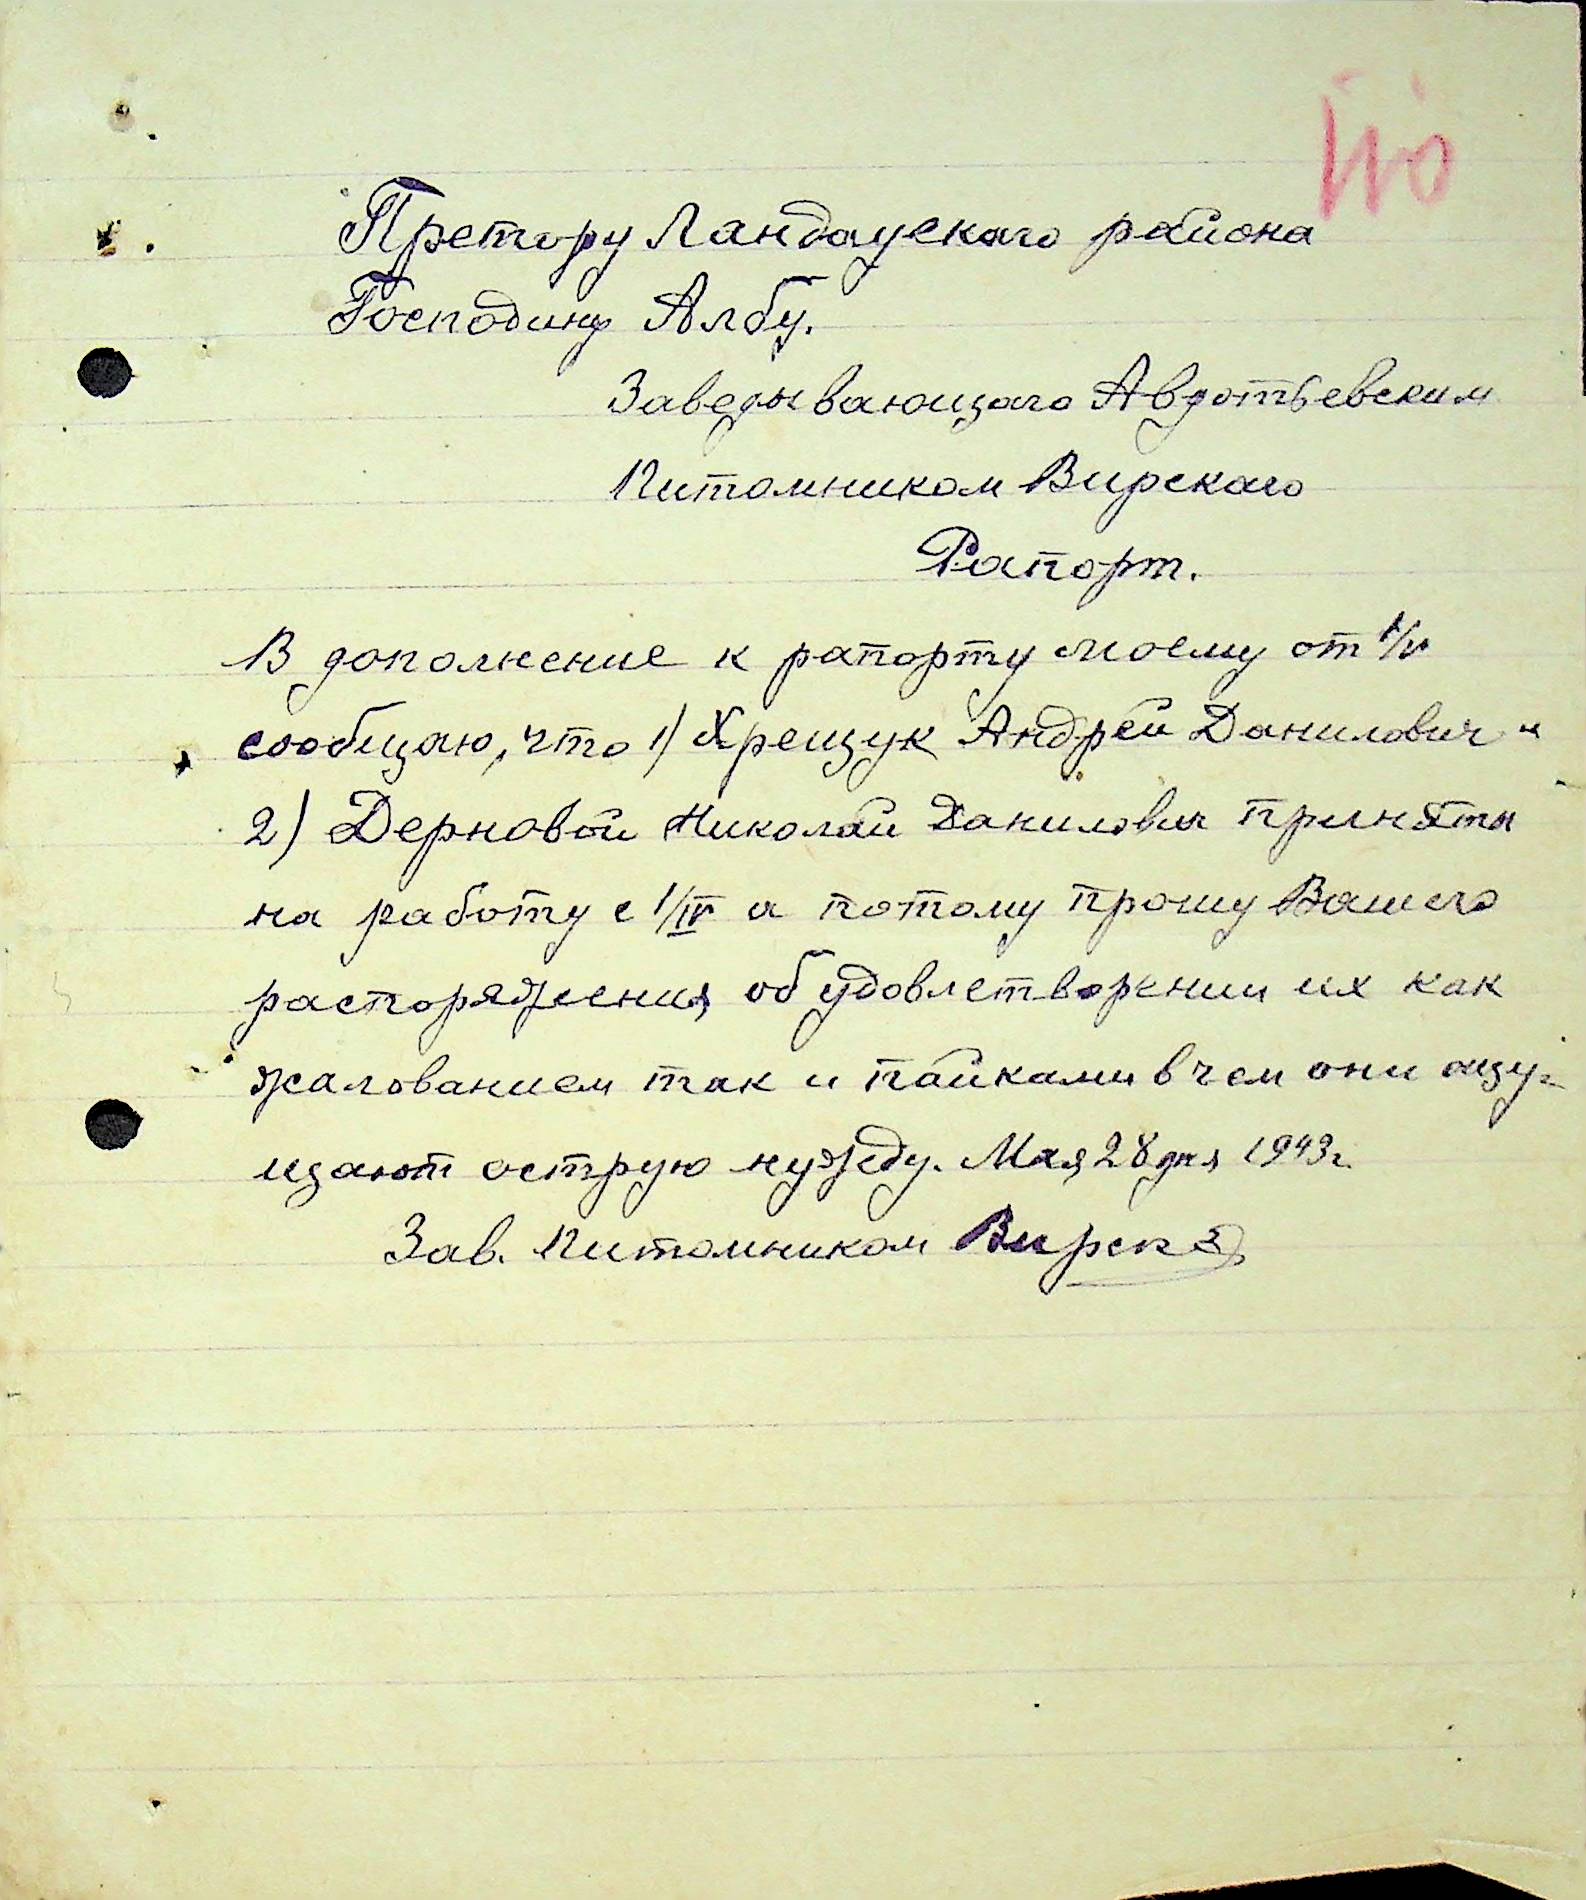 Претору Ландаускаго района
Господину Албу.
Заведывающаго Авдотьевским
Питомником Вирскаго
Рапорт.
В дополнение к рапорту моему от 1/V
сообщаю, что 1) Хрещук Андрей Данилович и
2) Дерновой Николай Данилович приняты
на работу с 1/IV а потому прошу Вашего
распоряжения об удовлетворении их как
жалованием так и пайками в чем они ощу-
щают острую нужду. Мая 28 дня 1943 г.
Зав. Питомником Вирск